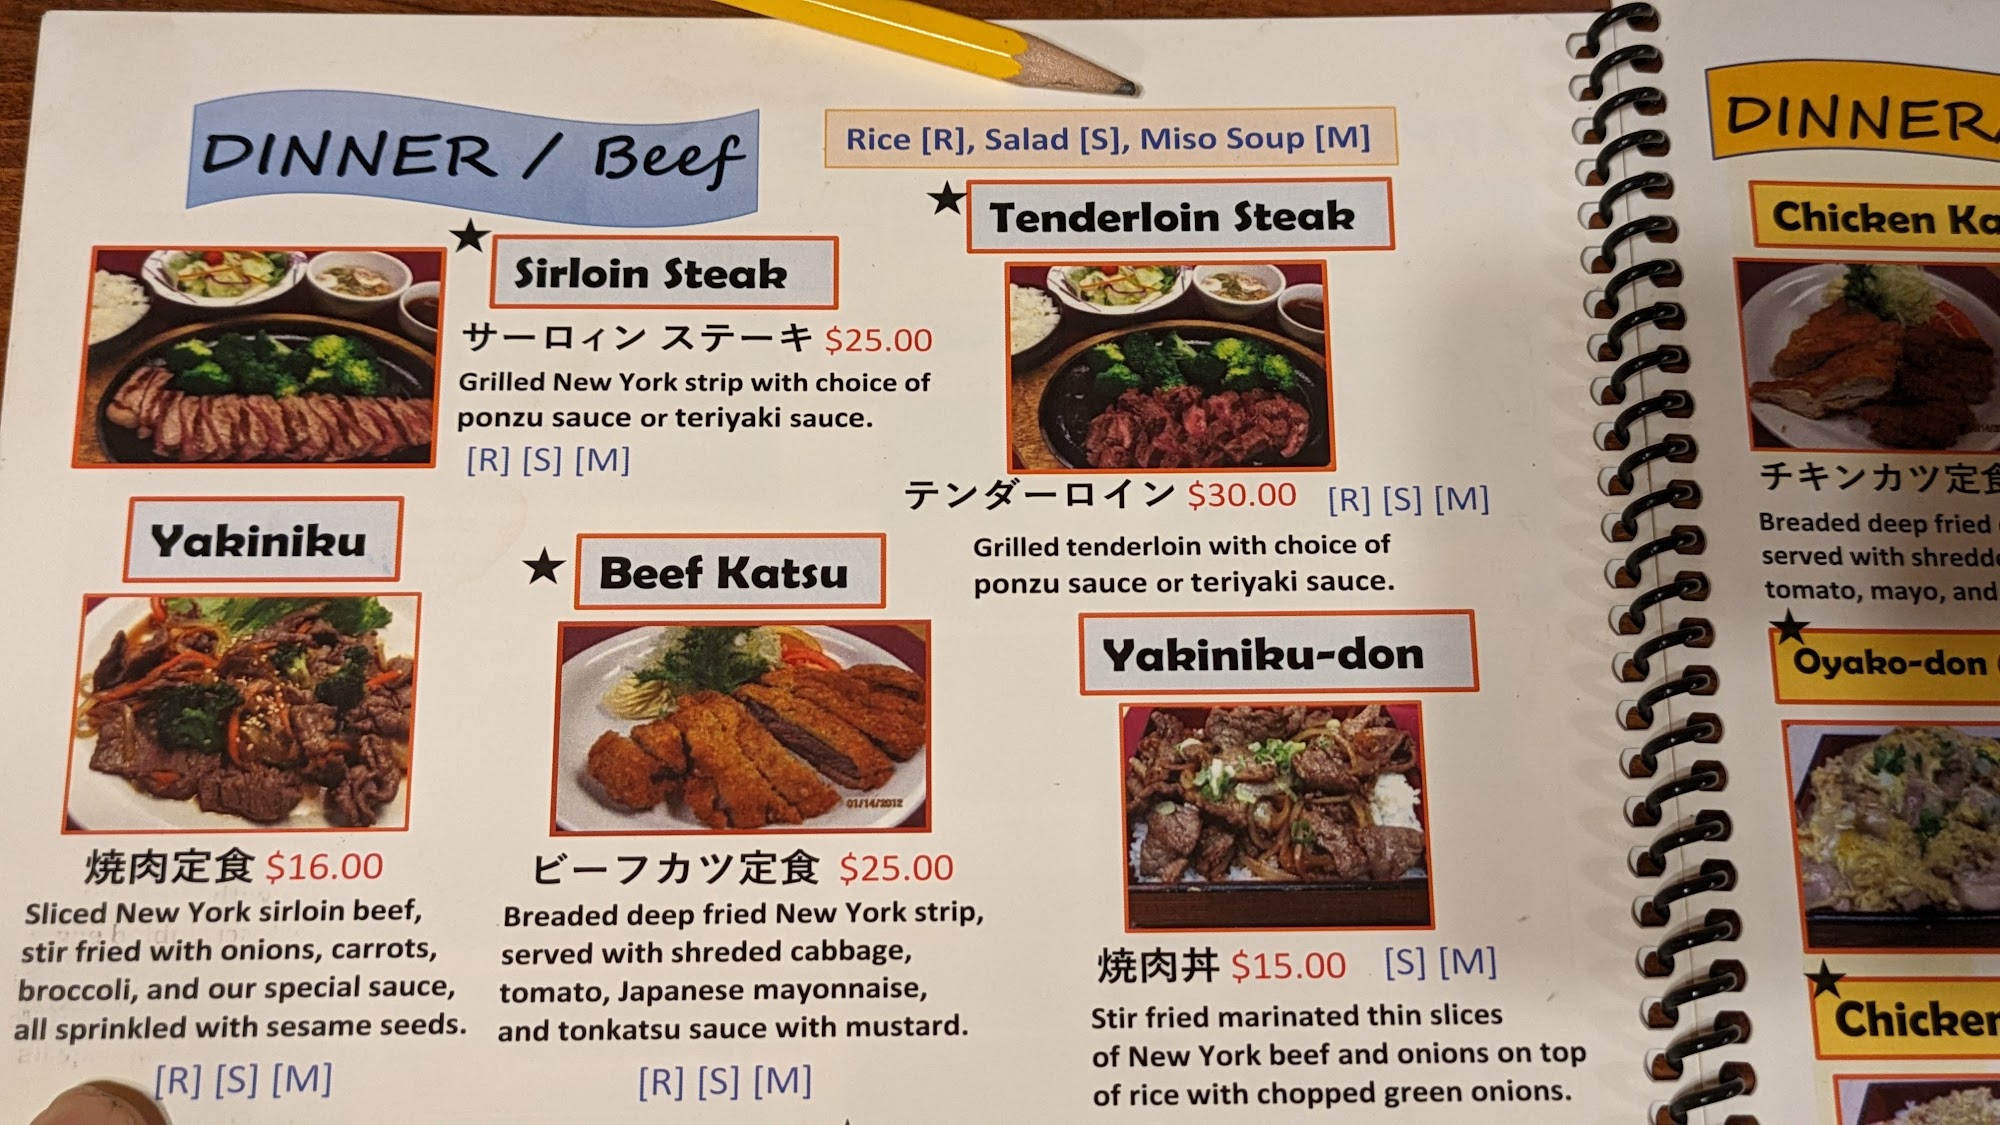 DINNER / Beef
Rice [R], Salad [S], Miso Soup [M]
Sirloin Steak
サーロィン ステーキ $25.00
Grilled New York strip with choice of
ponzu sauce or teriyaki sauce.
[R] [S] [M]
Tenderloin Steak
テンダーロイン $30.00 [R] [S] [M]
Grilled tenderloin with choice of
ponzu sauce or teriyaki sauce.
Yakiniku
焼肉定食 $16.00
Sliced New York sirloin beef,
stir fried with onions, carrots,
broccoli, and our special sauce,
all sprinkled with sesame seeds.
[R] [S] [M]
Beef Katsu
01/14/2012
ビーフカツ定食 $25.00
Breaded deep fried New York strip,
served with shreded cabbage,
tomato, Japanese mayonnaise,
and tonkatsu sauce with mustard.
[R] [S] [M]
Yakiniku-don
焼肉丼 $15.00 [S] [M]
Stir fried marinated thin slices
of New York beef and onions on top
of rice with chopped green onions.
DINNER/
Chicken Ka
チキンカツ定食
Breaded deep fried
served with shredde
tomato, mayo, and
Oyako-don
Chicken